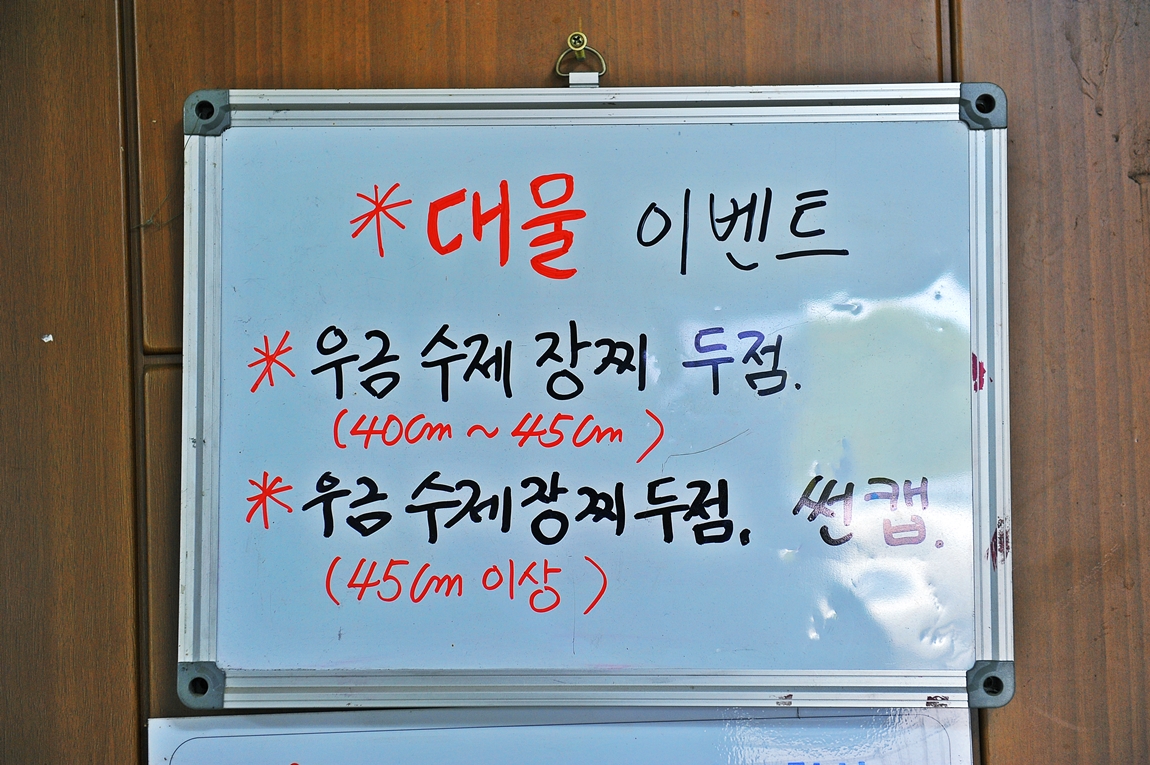 * 대물 이벤트
* 우금 수제 장찌 두점.
(40cm ~ 45cm)
* 우금 수제 장찌 두점. 썬캡.
(45cm 이상)